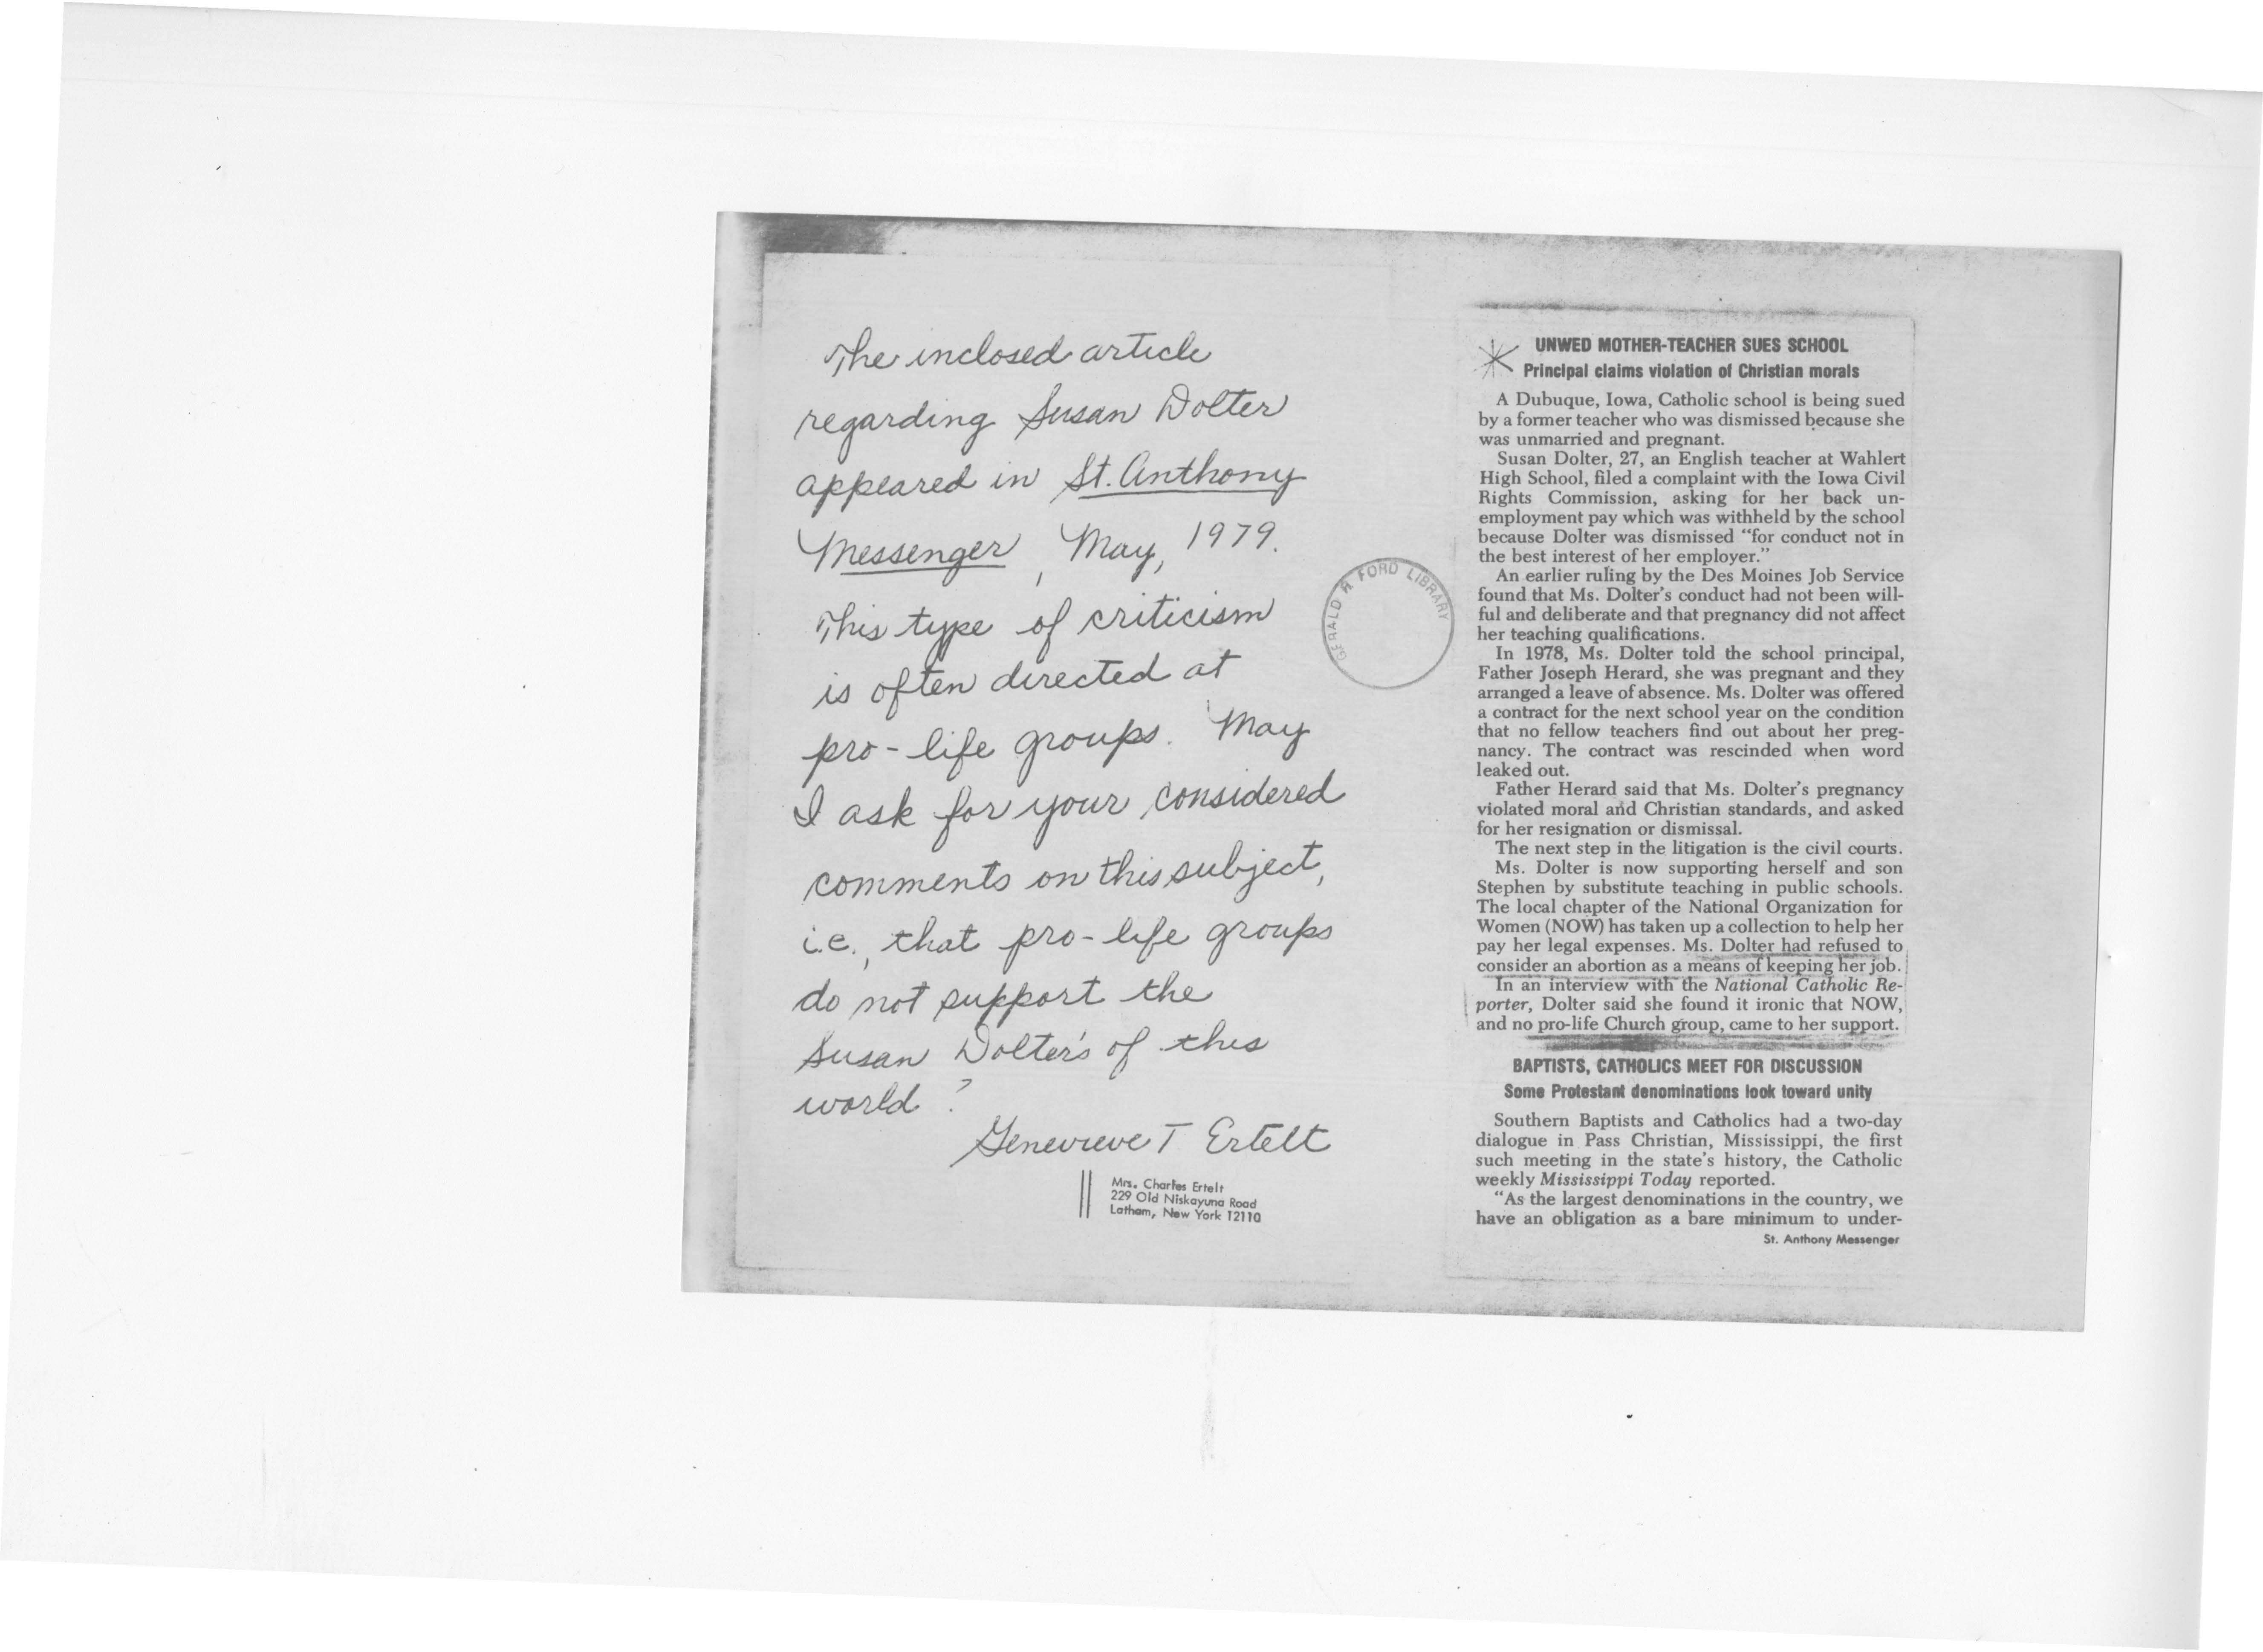 The inclosed article
regarding Susan Dolter
appeared in St. Anthony
Messenger, May, 1979.
This type of criticism
is often directed at
pro-life groups. May
I ask for your considered
comments on this subject,
i.e., that pro-life groups
do not support the
Susan Dolter's of this
world?
Genevieve T Ertelt
Mrs. Charles Ertelt
229 Old Niskayuna Road
Latham, New York 12110
GERALD R FORD LIBRARY
UNWED MOTHER-TEACHER SUES SCHOOL
Principal claims violation of Christian morals
A Dubuque, Iowa, Catholic school is being sued
by a former teacher who was dismissed because she
was unmarried and pregnant.
Susan Dolter, 27, an English teacher at Wahlert
High School, filed a complaint with the Iowa Civil
Rights Commission, asking for her back un-
employment pay which was withheld by the school
because Dolter was dismissed “for conduct not in
the best interest of her employer.”
An earlier ruling by the Des Moines Job Service
found that Ms. Dolter’s conduct had not been will-
ful and deliberate and that pregnancy did not affect
her teaching qualifications.
In 1978, Ms. Dolter told the school principal,
Father Joseph Herard, she was pregnant and they
arranged a leave of absence. Ms. Dolter was offered
a contract for the next school year on the condition
that no fellow teachers find out about her preg-
nancy. The contract was rescinded when word
leaked out.
Father Herard said that Ms. Dolter’s pregnancy
violated moral and Christian standards, and asked
for her resignation or dismissal.
The next step in the litigation is the civil courts.
Ms. Dolter is now supporting herself and son
Stephen by substitute teaching in public schools.
The local chapter of the National Organization for
Women (NOW) has taken up a collection to help her
pay her legal expenses. Ms. Dolter had refused to
consider an abortion as a means of keeping her job.
In an interview with the National Catholic Re-
porter, Dolter said she found it ironic that NOW,
and no pro-life Church group, came to her support.
BAPTISTS, CATHOLICS MEET FOR DISCUSSION
Some Protestant denominations look toward unity
Southern Baptists and Catholics had a two-day
dialogue in Pass Christian, Mississippi, the first
such meeting in the state’s history, the Catholic
weekly Mississippi Today reported.
“As the largest denominations in the country, we
have an obligation as a bare minimum to under-
St. Anthony Messenger